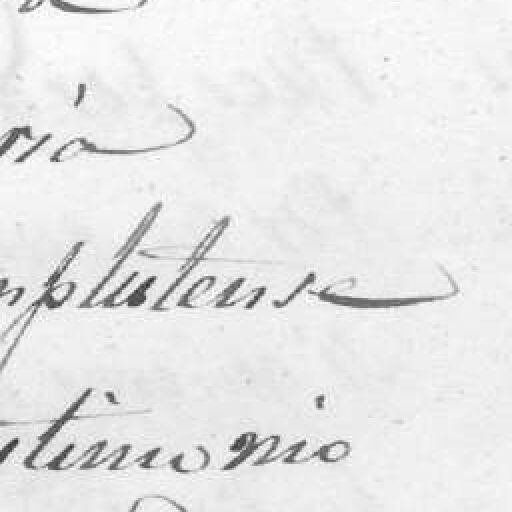 ria
mplutense
stimonio